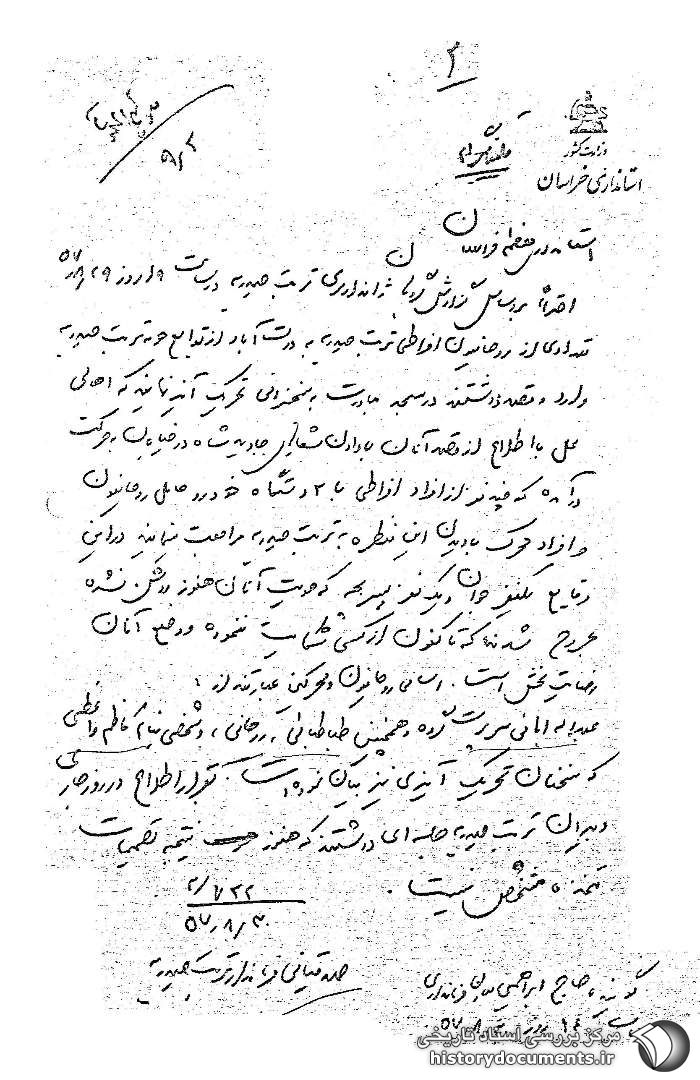 ۲
وزارت کشور
استانداری خراسان
تلفنگرام
۹/۲
استاندار معظم خراسان
احتراماً براساس گزارش گروهان ژاندارمری تربت حیدریه در ساعت ۱۹ روز ۵۷/۸/۲۹
تعدادی از روحانیون افراطی تربت حیدریه به دولت آباد از توابع حومه تربت حیدریه
وارد و قصد داشتند در مسجد مبادرت به سخنرانی تحریک آمیز نمایند که اهالی
محل با اطلاع از قصد آنان با دادن شعارهای جاوید شاه در خیابان به حرکت
درآمده که چند نفر از افراد افراطی با ۲ دستگاه خودرو حامل روحانیون
و افراد محرک با دیدن این منظره به تربت حیدریه مراجعت می‌نمایند در این
وقایع یکنفر جوان و یک نفر پسر بچه که هویت آنان هنوز روشن نشده
مجروح شده‌اند که تا کنون از کسی شکایت ننموده و وضع آنان
رضایت بخش است. اسامی روحانیون و محرکین عبارتند از:
عبداله امانی سرپرست گروه و همچنین طباطبائی، روحانی، و شخصی بنام کاظم واعظی
که سخنان تحریک آمیزی نیز بیان نموده‌اند. بقرار اطلاع در روز جاری
دبیران تربت حیدریه جلسه‌ای داشتند که هنوز نتیجه تصمیمات
متخذه مشخص نیست.
۲/۷۲۲
۵۷/۸/۳۰
فرماندار تربت حیدریه
گوینده حاج ابراهیمی فرمانداری
مرکز بررسی اسناد تاریخی
historydocuments.ir